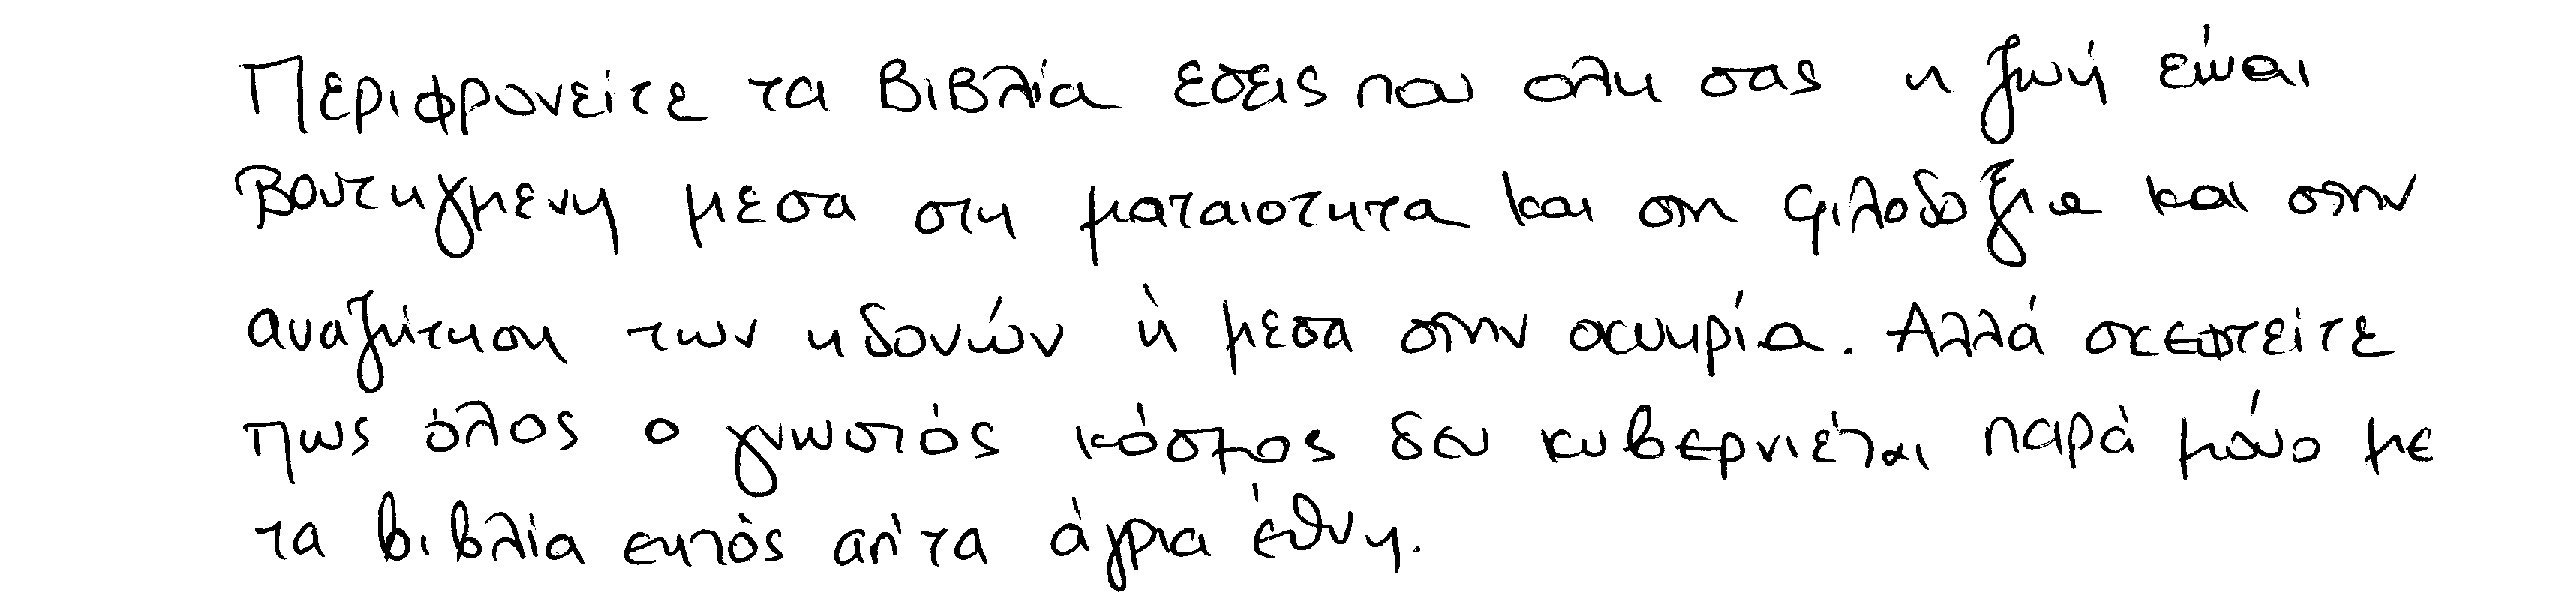 Περιφρονείτε τα βιβλία εσεις που ολη σας η ζωή είναι
βουτηγμενη μεσα στη ματαιοτητα και στη φιλοδοξια και στην
αναζήτηση των ηδονών ή μεσα στην οκνηρία. Αλλά σκεφτείτε
πως όλος ο γνωστός κόσμος δεν κυβερνιέται παρά μόνο με
τα βιβλία εκτός απ' τα άγρια έθνη.